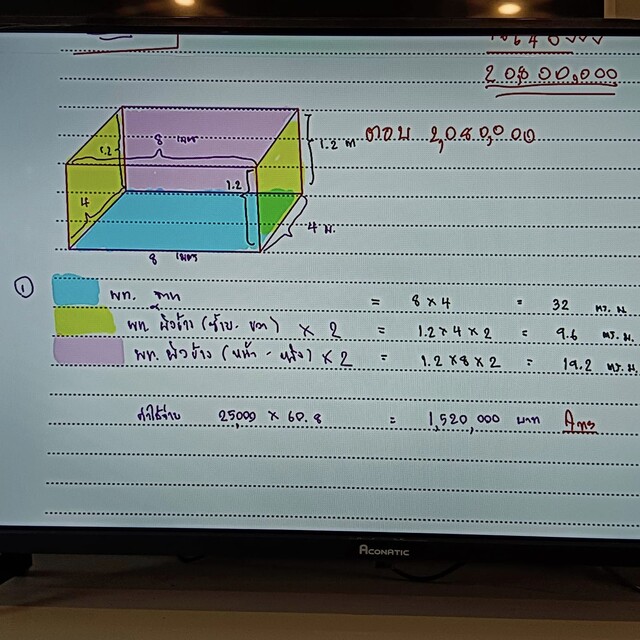 20,800,000
ตอบ 2,080,000
8 เมตร
1.2
1.2 ม
1.2
4
4 ม.
8 เมตร
① พท. ฐาน = 8 × 4 = 32 ตร.ม
พท. ผิวข้าง (ซ้าย - ขวา) × 2 = 1.2 × 4 × 2 = 9.6 ตร.ม.
พท. ผิวข้าง (หน้า - หลัง) × 2 = 1.2 × 8 × 2 = 19.2 ตร.ม.
ค่าใช้จ่าย 25,000 × 60.8 = 1,520,000 บาท Ans
ACONATIC